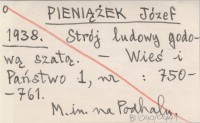 PIENIĄŻEK Józef
1938. Strój ludowy godo-
wą szatą. — Wieś i
Państwo 1, nr : 750-
-761.
M.in. na Podhalu.